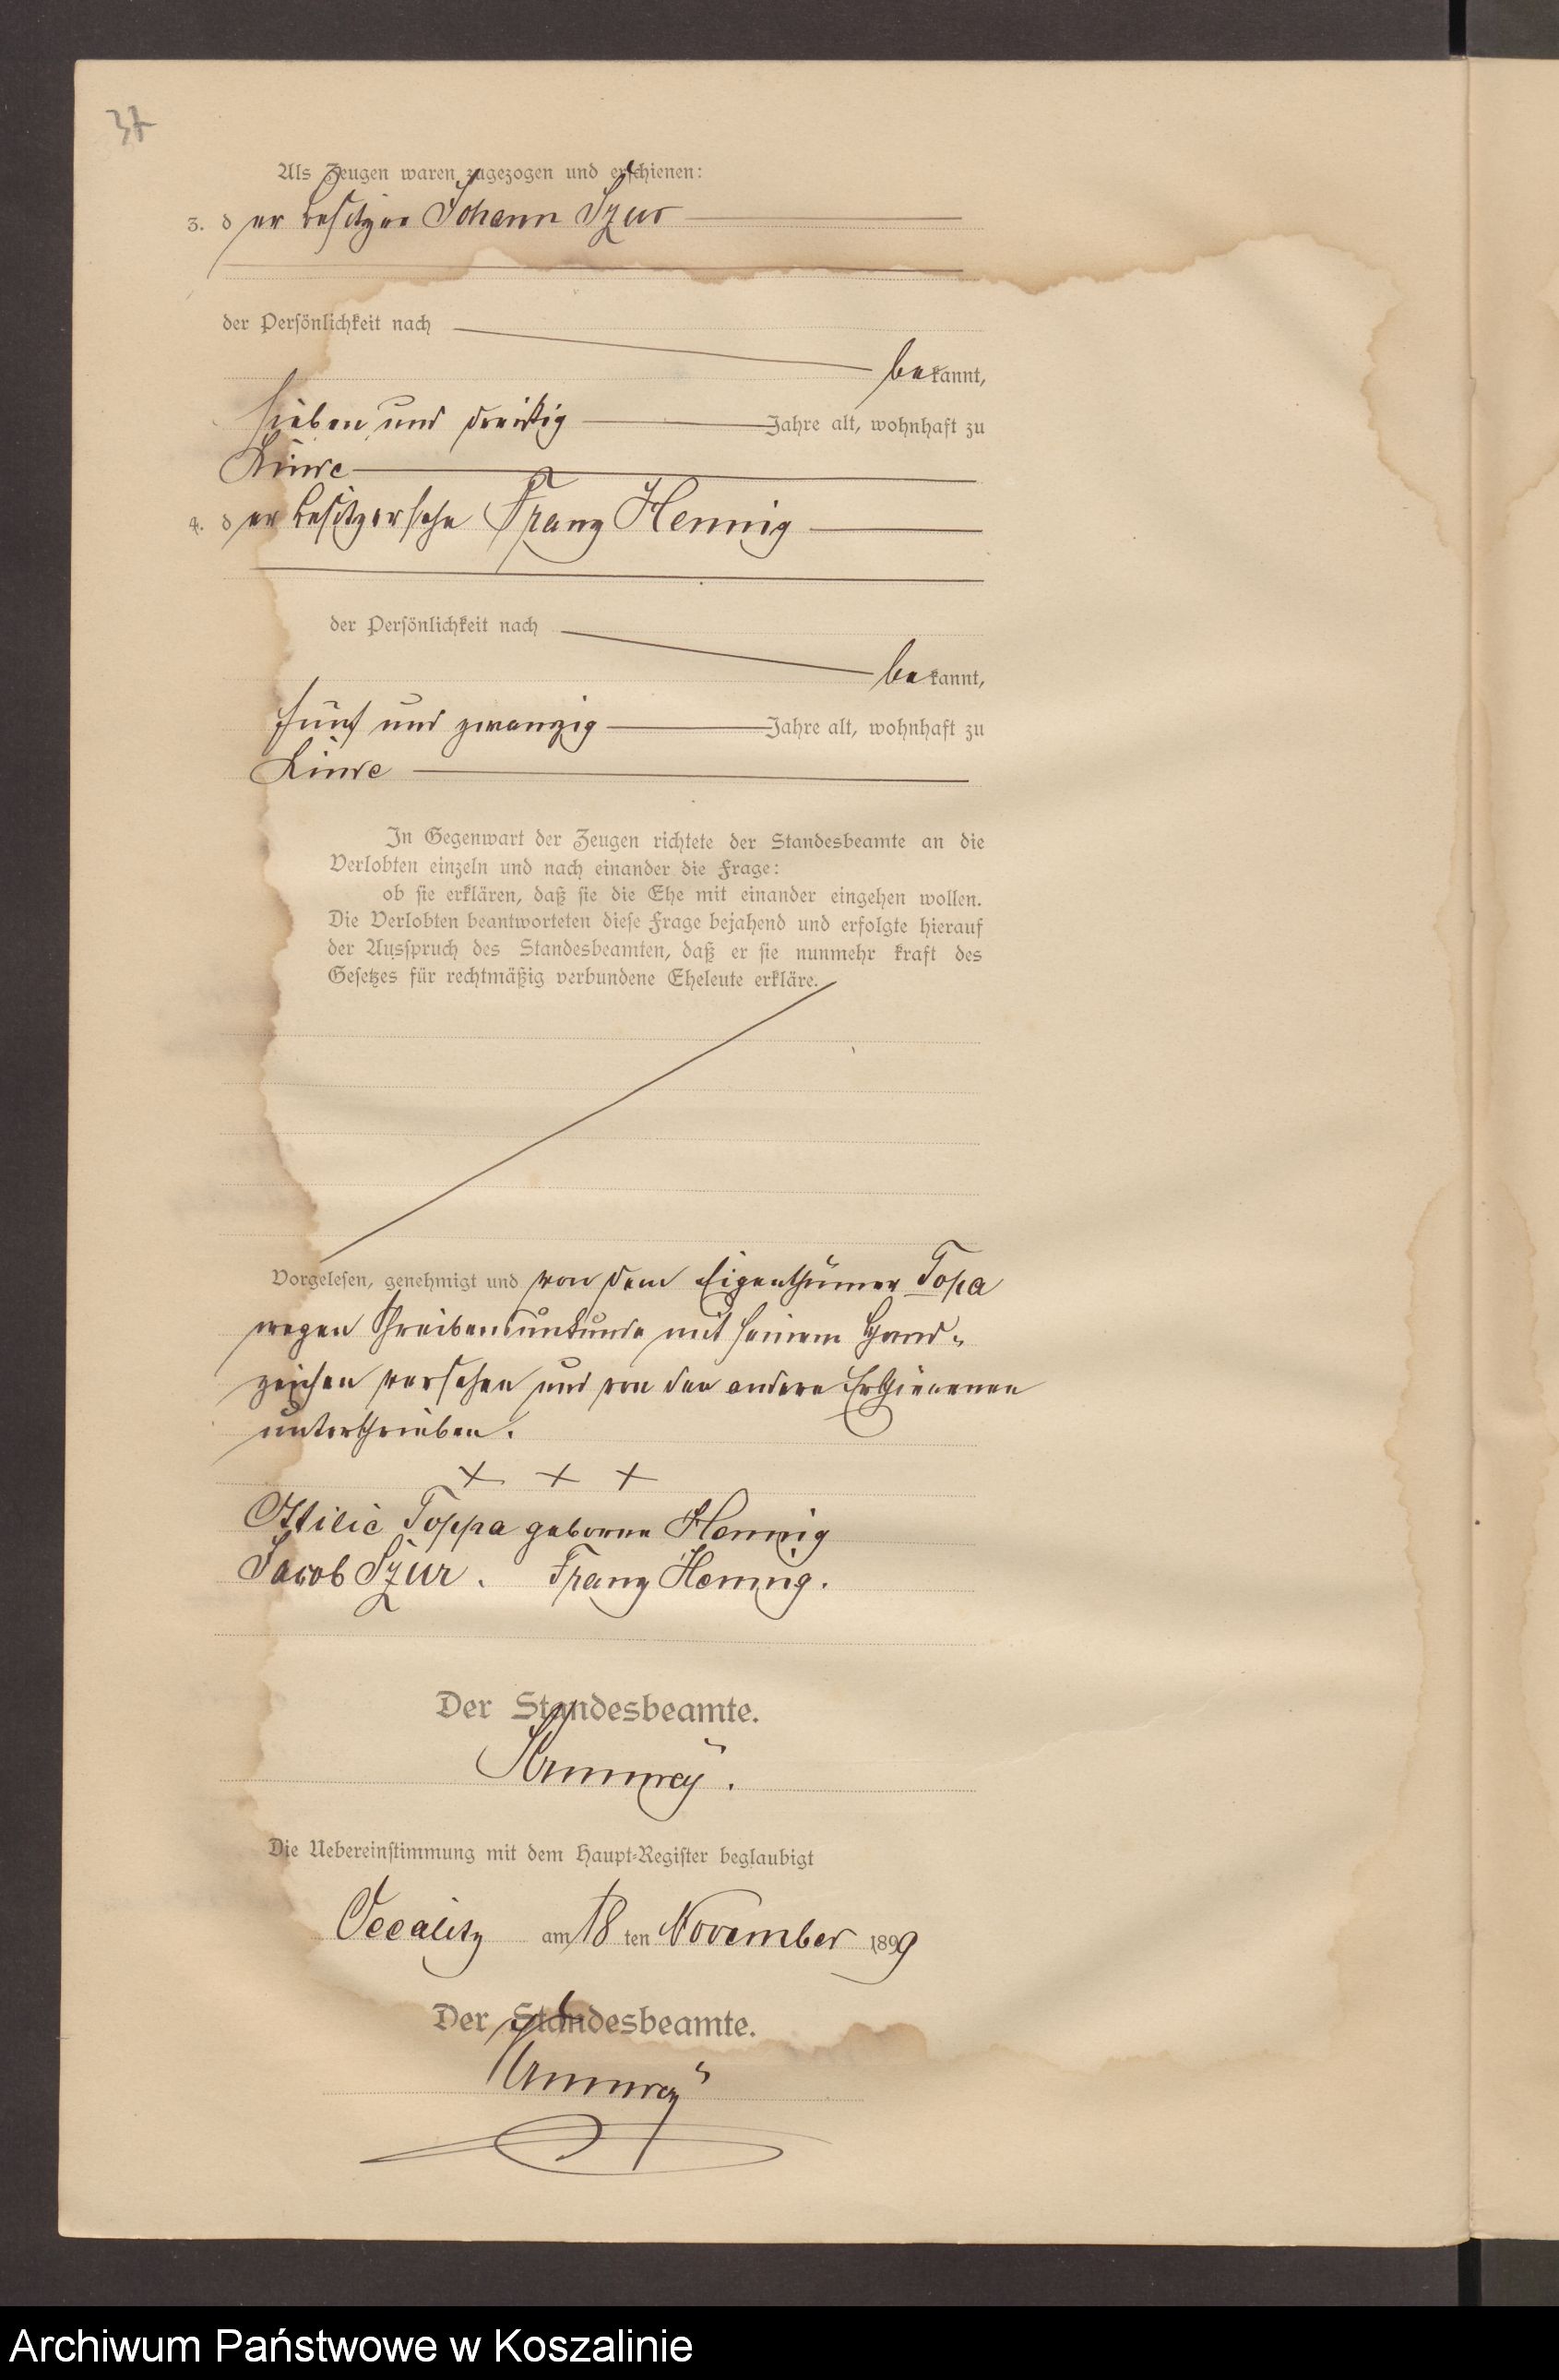 37
Als Zeugen waren zugezogen und erschienen:
3. der Besitzer Johann Szur
der Persönlichkeit nach
bekannt,
sieben und dreißig Jahre alt, wohnhaft zu
4. der Besitzersohn Franz Hennig
der Persönlichkeit nach
bekannt,
fünf und zwanzig Jahre alt, wohnhaft zu
In Gegenwart der Zeugen richtete der Standesbeamte an die
Verlobten einzeln und nach einander die Frage:
ob sie erklären, daß sie die Ehe mit einander eingehen wollen.
Die Verlobten beantworteten diese Frage bejahend und erfolgte hierauf
der Ausspruch des Standesbeamten, daß er sie nunmehr kraft des
Gesetzes für rechtmäßig verbundene Eheleute erkläre.
Vorgelesen, genehmigt und von dem Eigenthümer Topa
wegen Schreibensunkunde mit seinem Hand-
zeichen versehen und von den andern Erschienenen
unterschrieben.
+ + +
Ottilie Toppa geborne Hennig
Jacob Szur. Franz Hennig.
Der Standesbeamte.
Die Uebereinstimmung mit dem Haupt-Register beglaubigt
Occalitz am 18 ten November 1899
Der Standesbeamte.
Archiwum Państwowe w Koszalinie